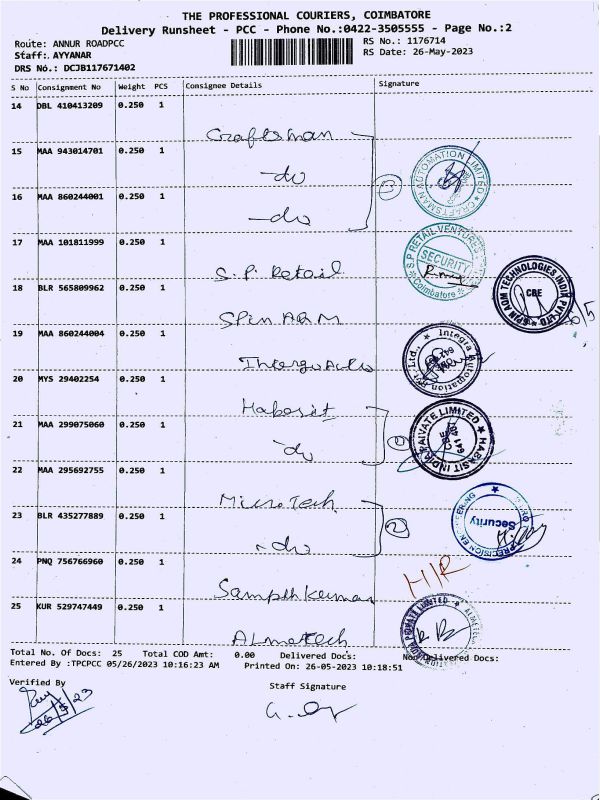 THE PROFESSIONAL COURIERS, COIMBATORE
Delivery Runsheet - PCC - Phone No.:0422-3505555 - Page No.:2
Route: ANNUR ROADPCC RS No.: 1176714
Staff: AYYANAR RS Date: 26-May-2023
DRS No.: DCJB117671402
S No Consignment No Weight PCS Consignee Details Signature
14 DBL 410413209 0.250 1
Craftsman
15 MAA 943014701 0.250 1
-do
CRAFTSMAN AUTOMATION LIMITED
16 MAA 860244001 0.250 1
-do
17 MAA 101811999 0.250 1
S.P. Retail
S.P RETAIL VENTURES
SECURITY
Coimbatore
18 BLR 565809962 0.250 1
SPIN AOM TECHNOLOGIES INDIA PVT LTD
CBE
19 MAA 860244004 0.250 1
Integra Automation Pvt. Ltd.,
20 MYS 29402254 0.250 1
Habasit
21 MAA 299075060 0.250 1
-do
HABASIT INDIA PRIVATE LIMITED
CBE
641 401
22 MAA 295692755 0.250 1
Micro Tech
23 BLR 435277889 0.250 1
-do
PRECISION ENGINEERING
Security
24 PNQ 756766960 0.250 1
Sampth kumar
H/R
25 KUR 529747449 0.250 1
Almetech
PRIVATE LIMITED
Total No. Of Docs: 25 Total COD Amt: 0.00 Delivered Docs: Non Delivered Docs:
Entered By :TPCPCC 05/26/2023 10:16:23 AM Printed On: 26-05-2023 10:18:51
Verified By
26/5/23
Staff Signature